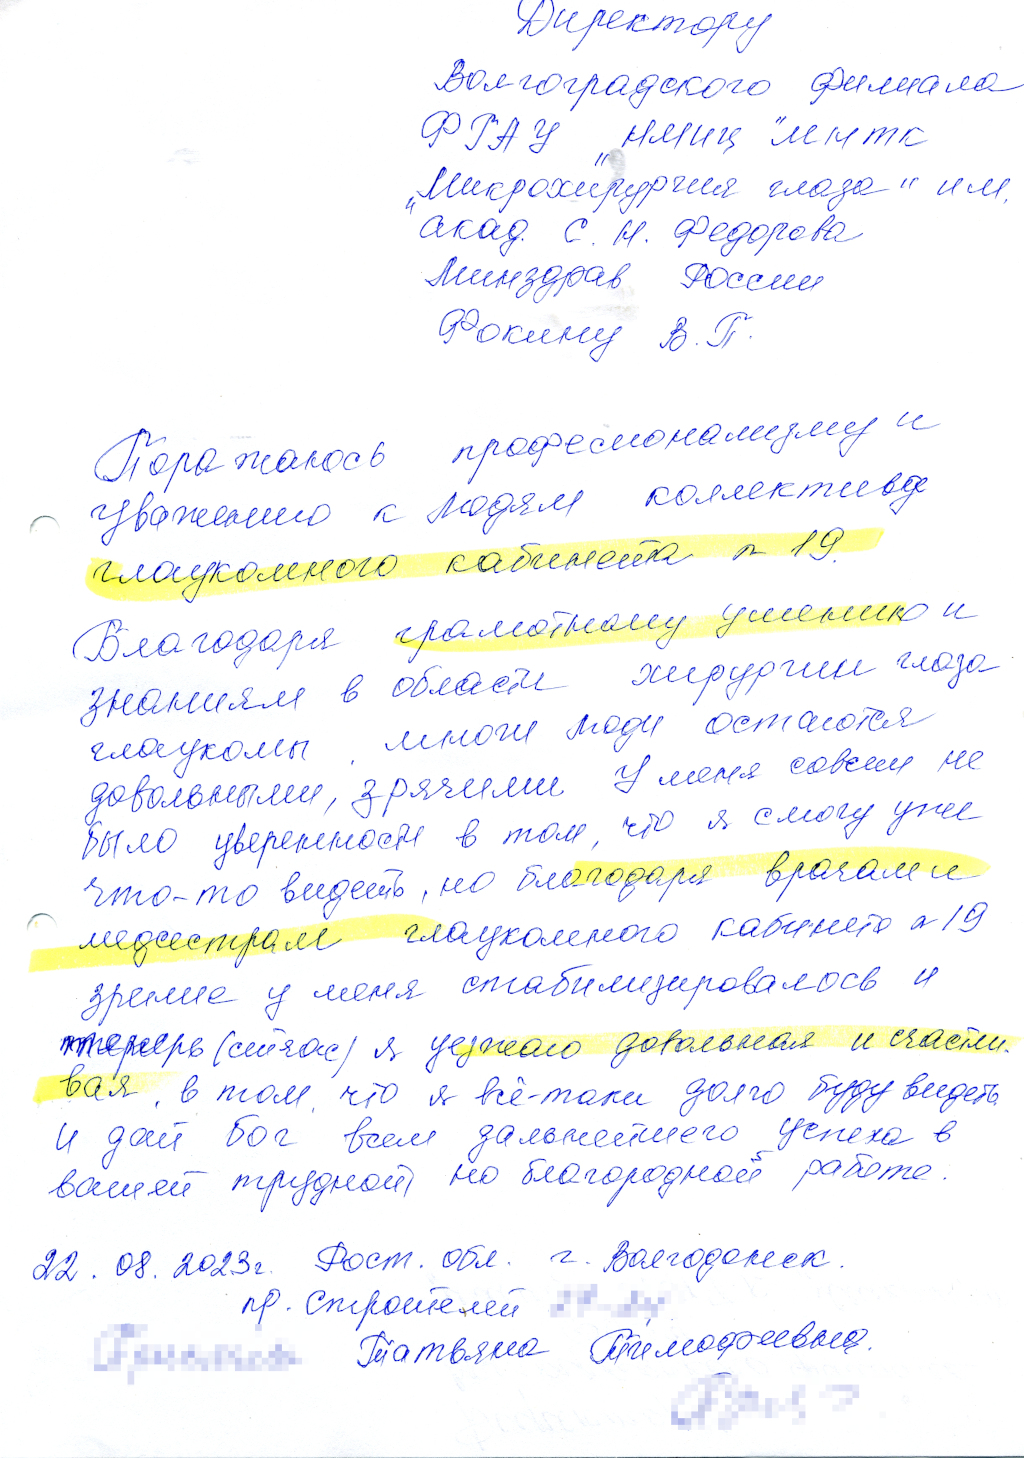 Директору
Волгоградского филиала
ФГАУ „НМИЦ "МНТК
„Микрохирургия глаза" им.
акад. С. Н. Федорова
Минздрав России
Фокину В. П.
Поражаюсь професионализму и
уважению к людям коллектива
глаукомного кабинета n 19.
Благодаря грамотному умению и
знаниям в области хирургии глаза
глаукомы, многи люди остаются
довольными, зрячими У меня совсем не
было уверенности в том, что я смогу уже
что-то видеть, но благодаря врачам и
медсестрам глаукомного кабинета n 19
зрение у меня стабилизировалось и
теперь (сейчас) я уезжаю довольная и счастли-
вая, в том, что я всё-таки долго буду видеть
И дай бог всем дальнейшего успеха в
вашей трудной, но благородной работе.
22. 08. 2023г. Рост. обл. г. Волгодонск.
пр. Строителей
Татьяна Тимофеевна.